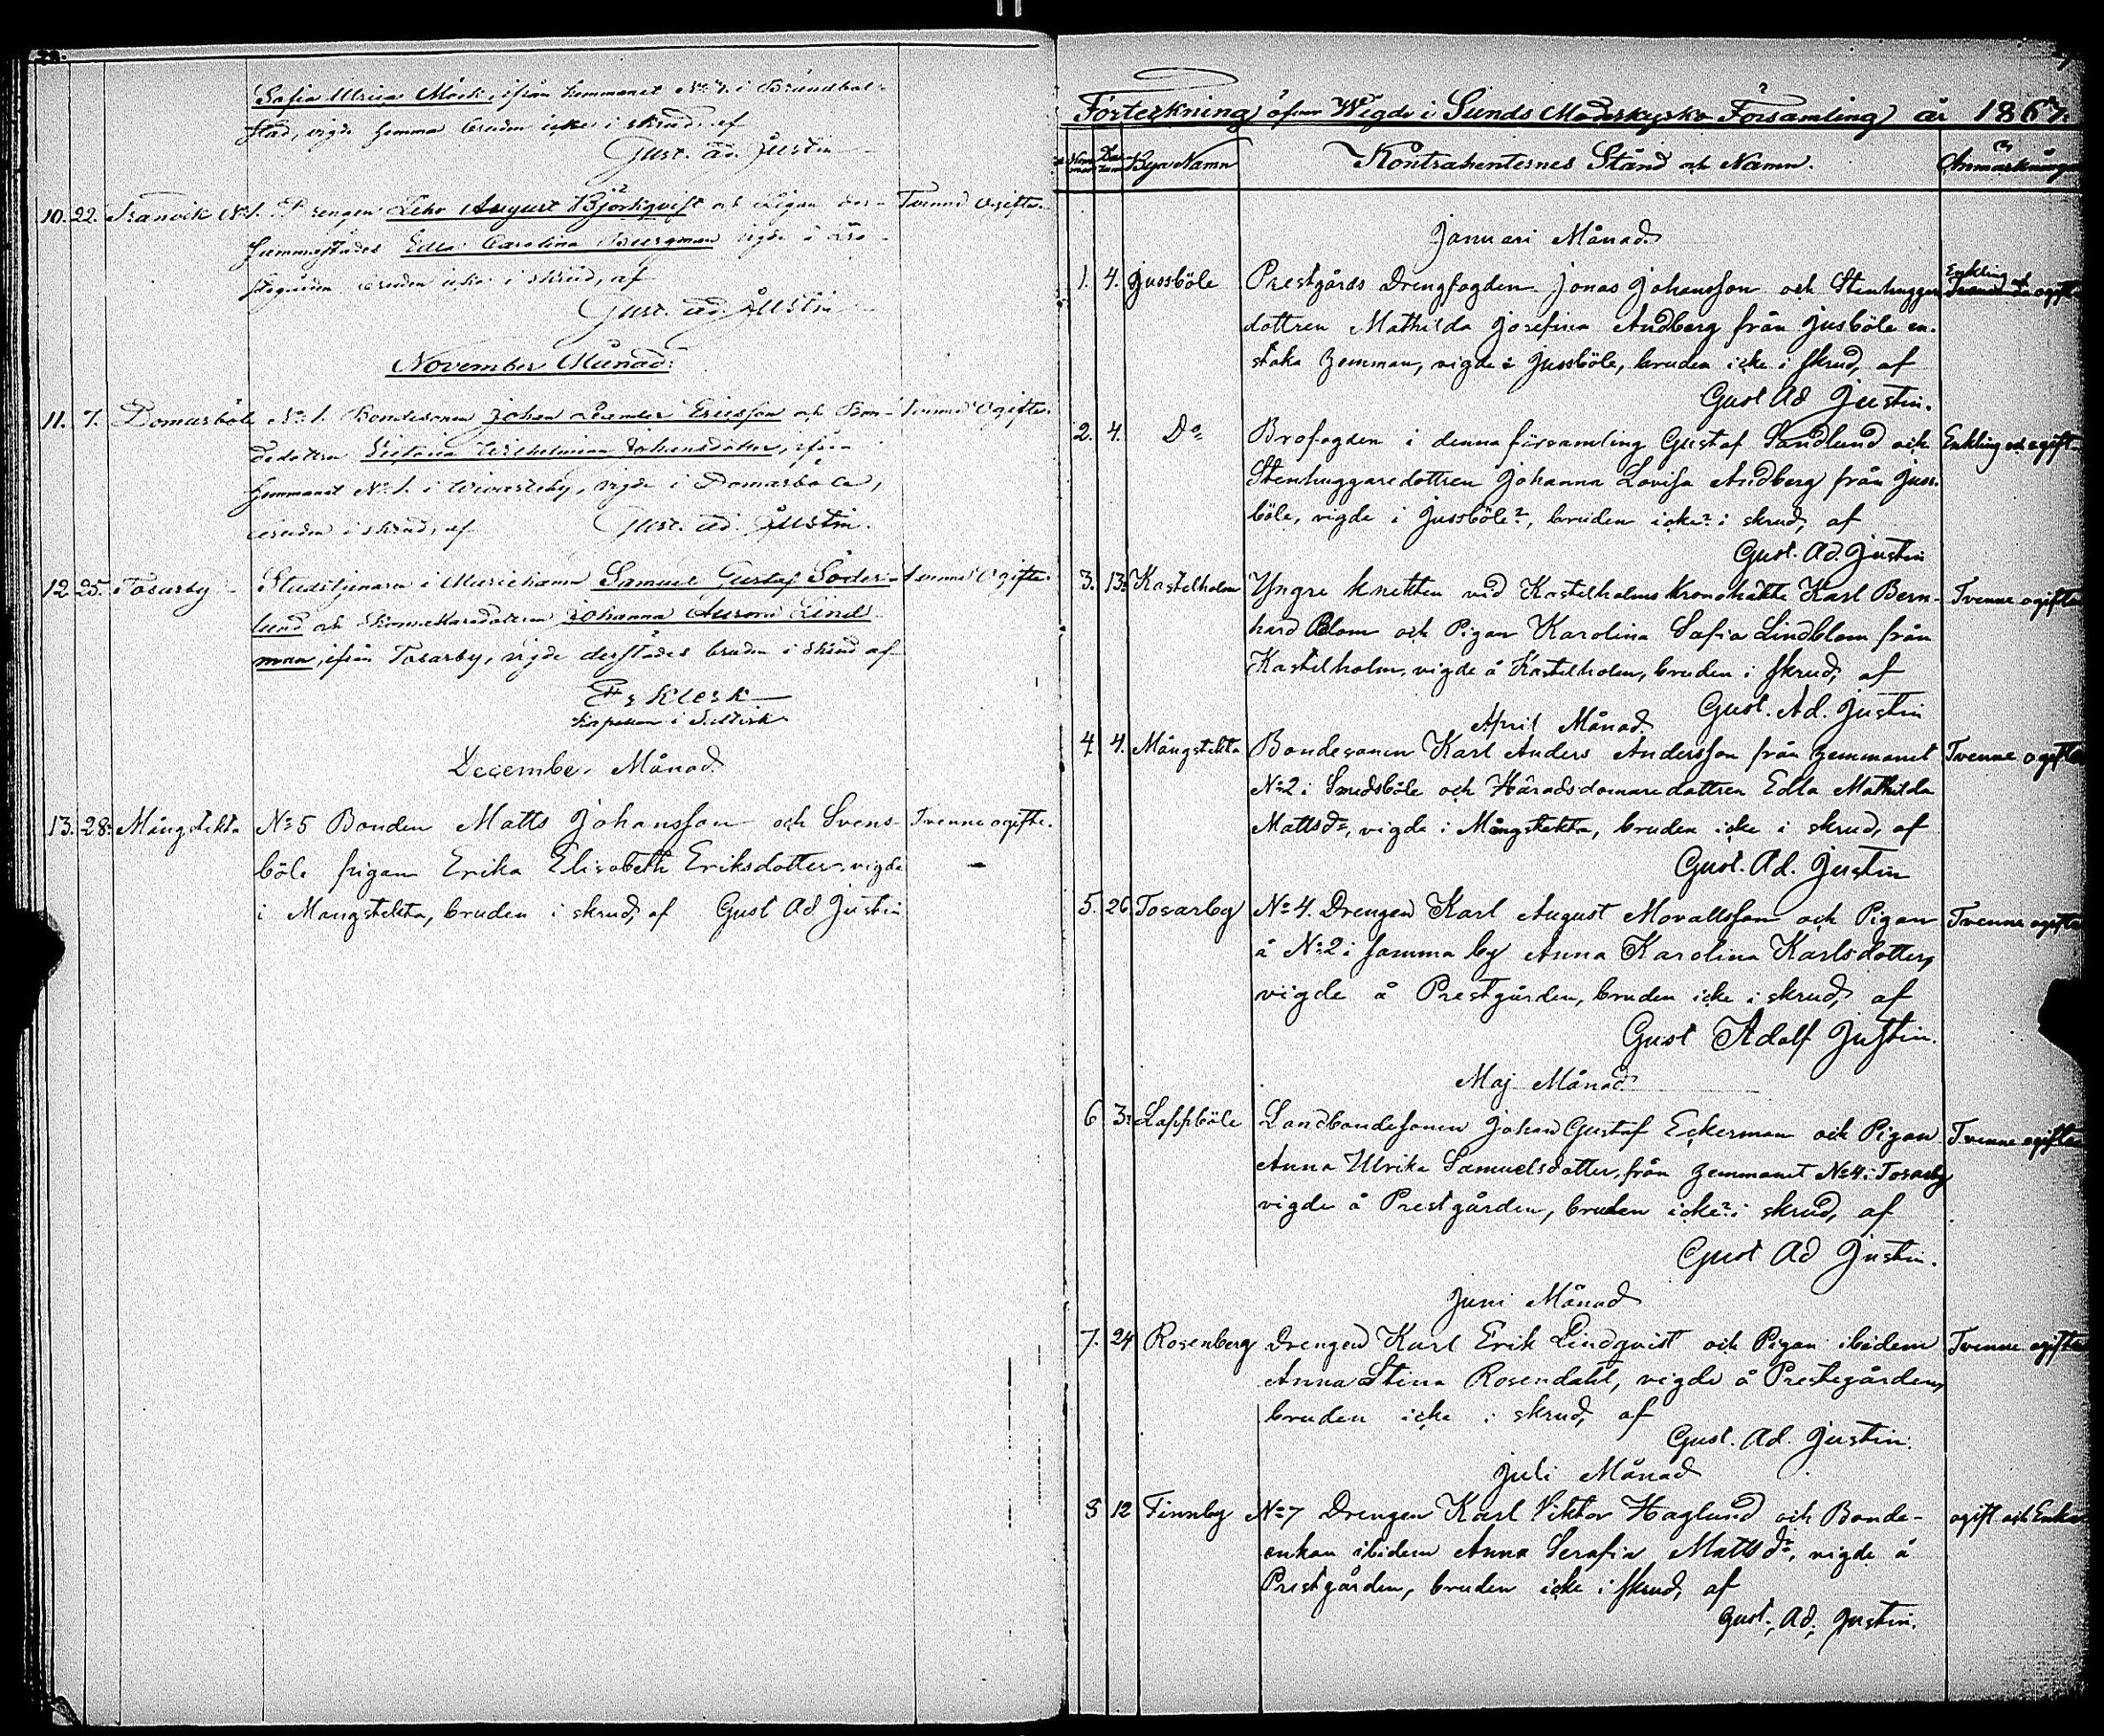 Sofia Ulrica Mock, ifrån hemmanet No 4 i Brändbol-
stad, vigde hemma bruden icke i skrud, af
Gust. Ad. Justin
10. 22. Tranvik No 1. Drengen Leho August Björkqvist och Pigan der- Tvenne Ogifte.
hemmastädes Edla Carolina Bergman vigde i Prä-
stegården bruden icke i skrud, af
Gust. Ad. Justin
November Månad:
11. 7. Domarböle No 1. Bondesonen Johan Leander Ericsson och Bon- Tvenne Ogifte.
dedottren Victoria Wilhelmina Johansdotter, ifrån
hemmanet No 1. i Wivasteby, vigde i Domarböle,
bruden i skrud, af Gust. Ad. Justin.
12 25. Tosarby Stadstjenaren i Mariehamn Samuel Gustaf Söder- Tvenne Ogifte.
lund och dottren Johanna Aurora Lind
man, ifrån Tosarby, vigde derstädes bruden i skrud af
Fr Klerk
Kapellan i Saltvik
December Månad.
13. 28. Mångstekta No 5 Bonden Matts Johansson och Svens- Tvenne ogifte.
böle pigan Erika Elisabeth Eriksdotter, vigde
i Mangstekta, bruden i skrud, af Gust Ad Justin
Förteckning öfver Wigde i Sunds Moderkyrko Församling år 1867.
Num mer Da tum Byns Namn Kontrahenternes Stånd och Namn. Anmärkningar
Januari Månad.
1. 4. Jussböle Prestgårds Drengfogden Jonas Johansson och Stenhuggare Enkling och ogift
dottren Mathilda Josefina Audberg från Jusböle en-
staka hemman, vigde i Jussböle, bruden icke i skrud, af
Gust Ad Justin.
2. 4. Do Brofogden i denna församling Gustaf Sandlund och Enkling och ogift
Stenhuggaredottren Johanna Lovisa Audberg från Juss-
böle, vigde i Jussböle, bruden icke i skrud, af
Gust. Ad. Justin
3. 13. Kastelholm Yngre knekten vid Kastelholms kronohäkte Karl Bern- Tvenne ogifta
hard Blom och Pigan Karolina Sofia Lindblom från
Kastelholm, vigde å Kastelholm, bruden i skrud, af
Gust. Ad. Justin
April Månad.
4 4. Mångstekta Bondesonen Karl Anders Andersson från hemmanet Tvenne ogifta
No 2 i Smedsböle och Häradsdomaredottren Edla Mathilda
Mattsdr, vigde i Mångstekta, bruden icke i skrud, af
Gust. Ad. Justin
5. 26. Tosarby No 4. Drengen Karl August Movallsson och Pigan Tvenne ogifta
å No 2 i samma by Anna Karolina Karlsdotter,
vigde å Prestgården, bruden icke i skrud, af
Gust Adolf Justin.
Maj Månad
6 3. Lappböle Landbondesonen Johan Gustaf Eckerman och Pigan Tvenne ogifta
Anna Ulrika Samuelsdotter, från hemmanet No 4 i Tosarby
vigde å Prestgården, bruden icke i skrud, af
Gust Ad Justin.
Juni Månad
7. 24 Rosenberg Drengen Karl Erik Lindqvist och Pigan ibidem Tvenne ogifta
Anna Stina Rosendahl, vigde å Prestegården,
bruden icke i skrud, af
Gust. Ad. Justin.
Juli Månad
8 12 Finnby No 7 Drengen Karl Viktor Haglund och Bonde- ogift och Enka
enkan ibidem Anna Serafia Mattsdr, vigde å
Prestgården, bruden icke i skrud, af
Gust. Ad. Justin.